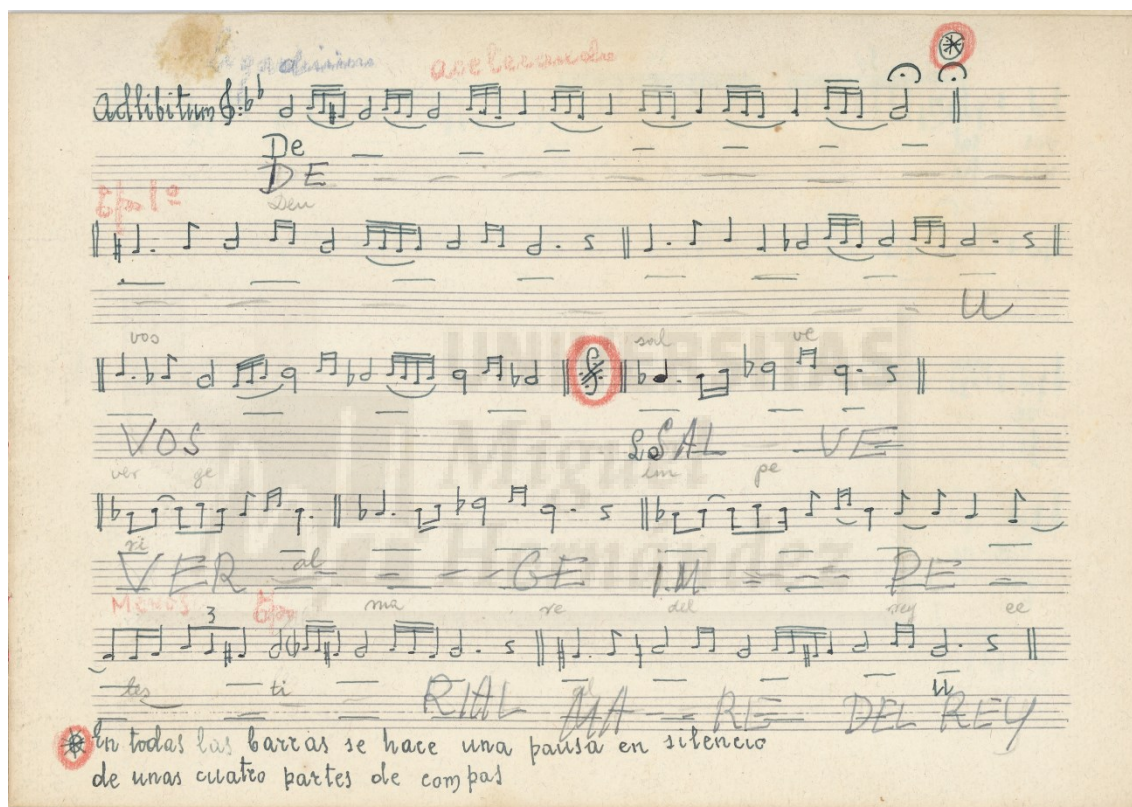 accelerando
Adlibitum
De
DE
Deu
Tpo 1º
U
vos sal ve
VOS SAL - VE
ver ge im pe
VER - - - GE IM - - - PE -
ri al
Menos Tpo ma re del rey ee
3
les ti al
RIAL MA - - RE DEL REY
u
En todas las barras se hace una pausa en silencio
de unas cuatro partes de compas
UNIVERSITAS
Miguel
Hernández